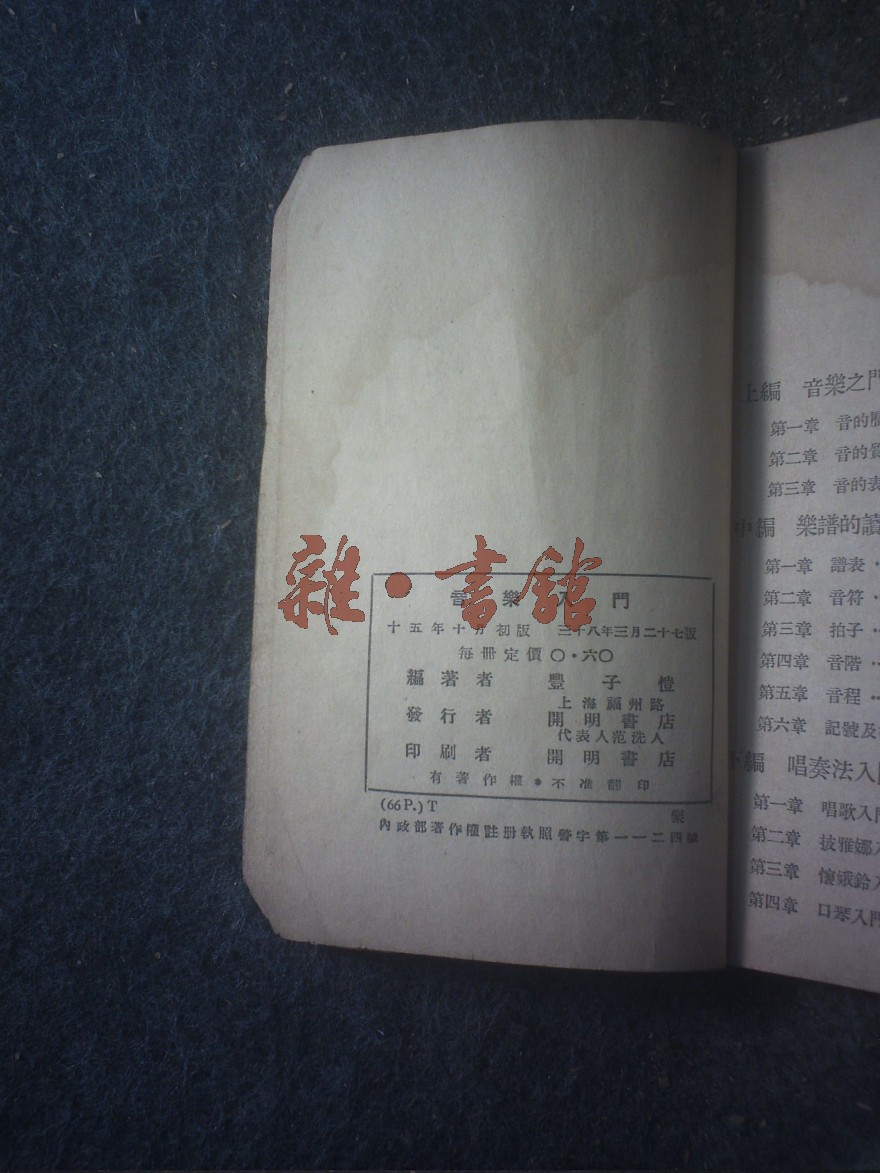 雜·書館
音樂入門
十五年十月初版 三十八年三月二十七版
每冊定價〇·六〇
編著者 豐子愷
上海福州路
發行者 開明書店
代表人范洗人
印刷者 開明書店
有著作權●不准翻印
(66P.)T
內政部著作權註册執照警字第一一二四號
上編 音樂之門
第一章 音的
第二章 音的質
第三章 音的表
中編 樂譜的讀
第一章 譜表·
第二章 音符·
第三章 拍子··
第四章 音階··
第五章 音程··
第六章 記號及
下編 唱奏法入門
第一章 唱歌入門
第二章 披雅娜入
第三章 懷娥鈴入
第四章 口琴入門